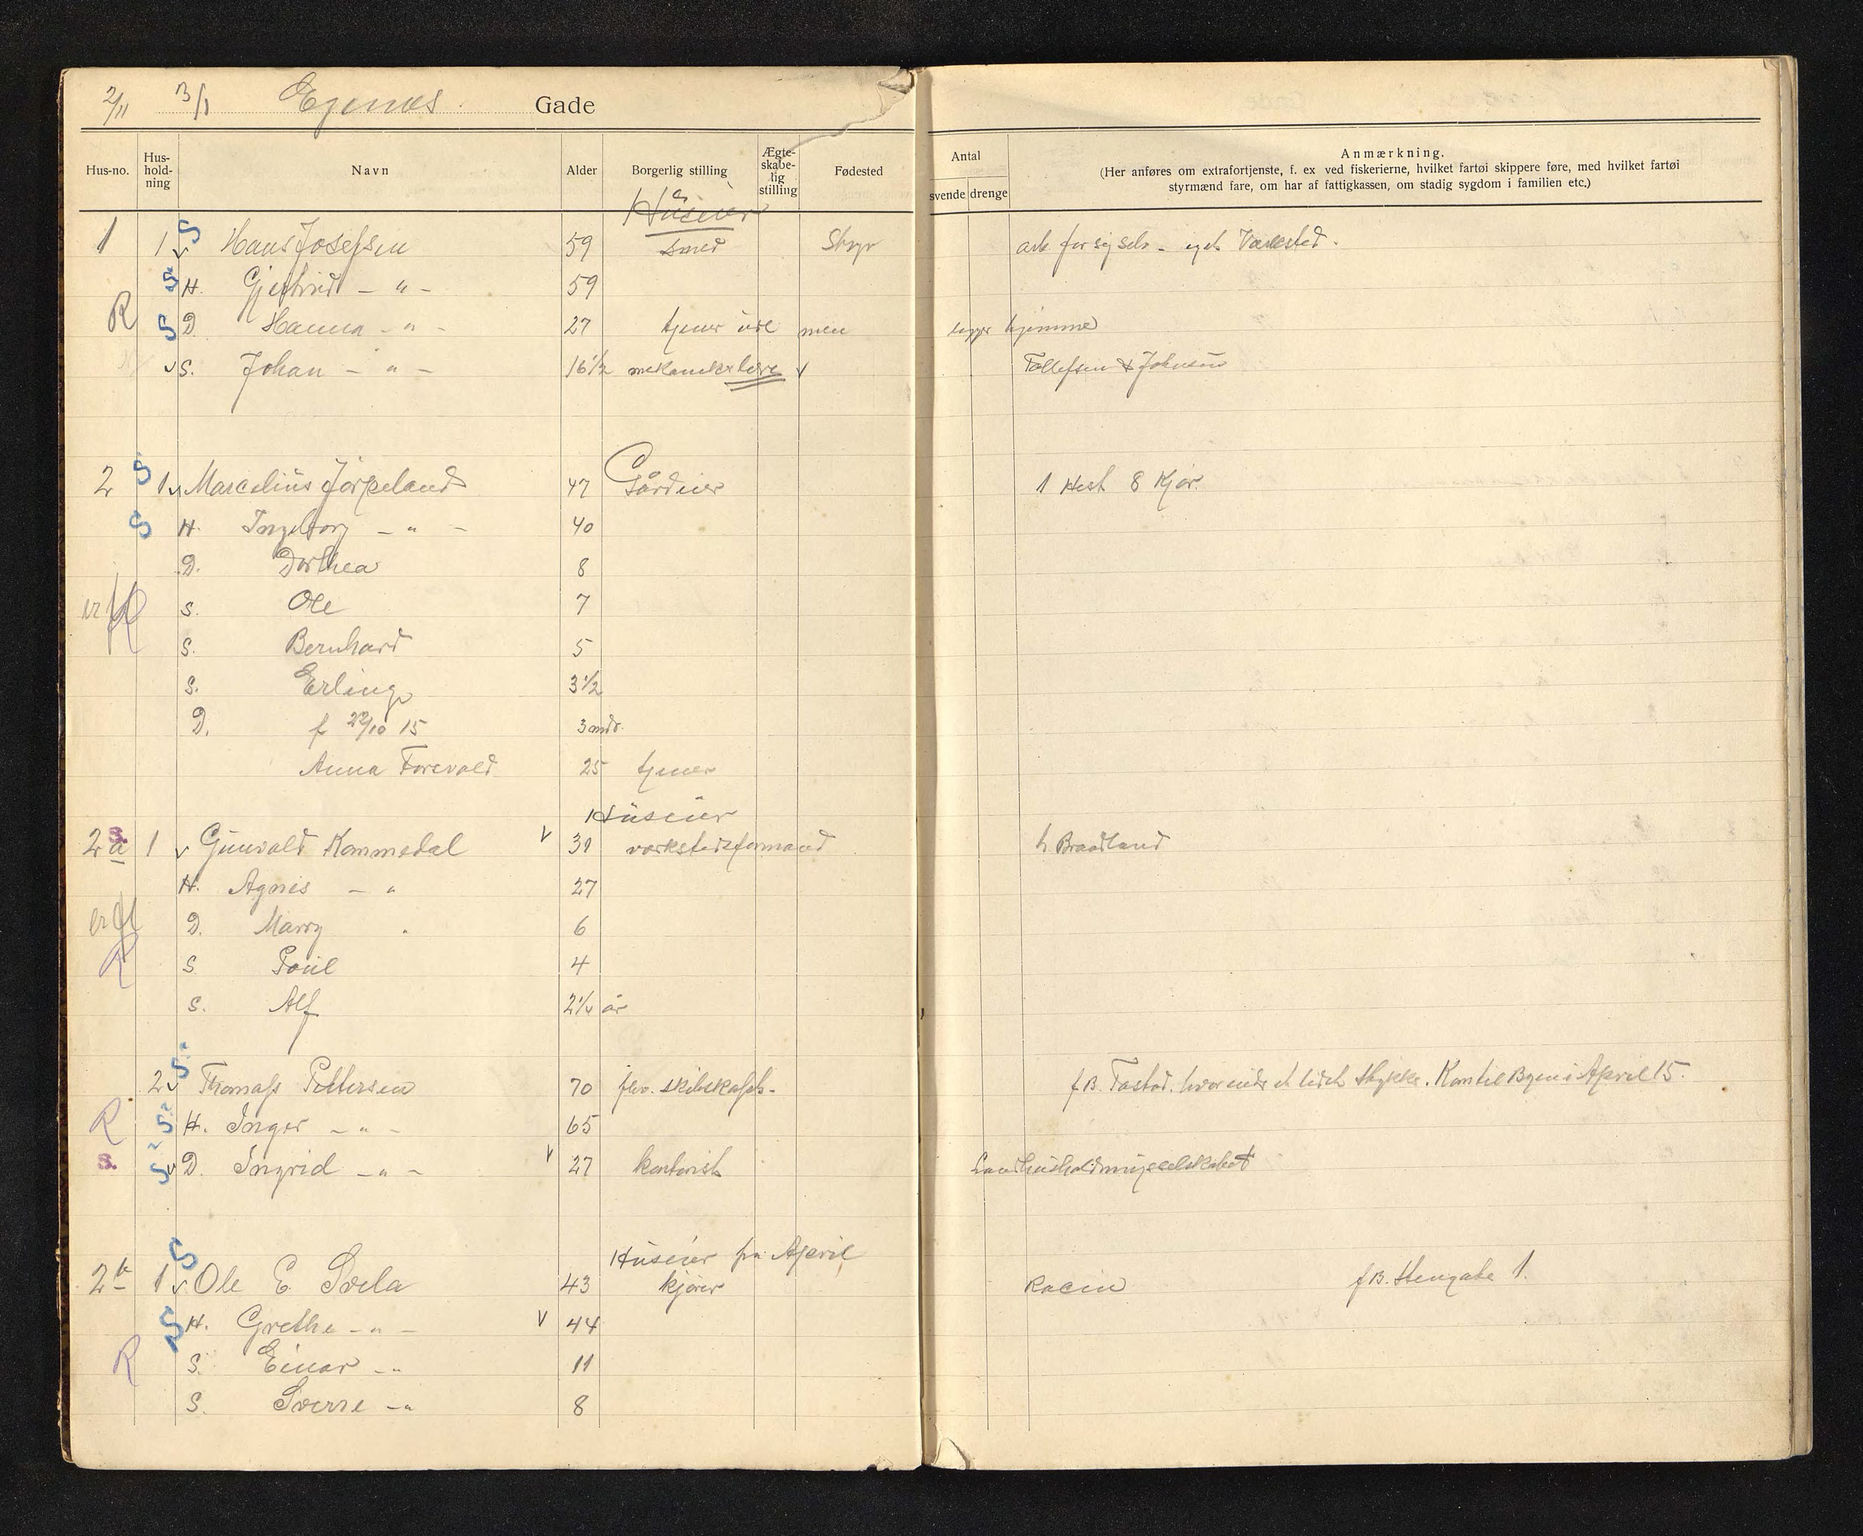 2/11 3/1 Egenes Gade
Hus-no. Hus-hold-ning Navn Alder Borgerlig stilling Ægte-skabe-lig stilling Fødested Antal svende drenge Anmærkning.
(Her anføres om extrafortjenste, f. ex ved fiskerierne, hvilket fartøi skippere føre, med hvilket fartøi
styrmænd fare, om har af fattigkassen, om stadig sygdom i familien etc.)
Huseier
1 1 v S Hans Josefsen 59 smed arb for sig selv - eget Værksted.
S H. Gjertrud - " - 59
R S D Hanna - " - 27 tjener ude men ligger hjemme
v S. Johan - " - 16 1/2 mekanikerlære v Tollefsen & Johnsen
2 S 1 v Marcelius Jørpeland 47 Gårdeier 1 Hest 8 Kjør.
S H. Ingeborg - " - 40
D. Dorthea 8
S. Ole 7
S. Bernhard 5
S. Erling 3 1/2
D. f 22/10 15 3 mdr.
Anna Torevold 25 tjener
Huseier
2a S. 1 v Gunvald Kommedal v 31 værkstedsformand h Braadland
H. Agnes - " 27
D. Marry " 6
R S. Poul 4
S. Alf 2 1/4 år
2 v S Thomas Pettersen 70 fhv. skibskapt. f B. Tastad. hvor eiede et lidet Stykke. Kom til Byen i April 15.
R S H. Inger - " - 65
S. S v D. Ingrid - " - v 27 kontorist Landhusholdningsselskabet
Huseier fra April
2b S 1 v Ole E. Svela 43 kjører Racin f B. Stengate 1.
S H. Grethe - " - v 44
R S. Einar - " 11
S. Sverre - " 8